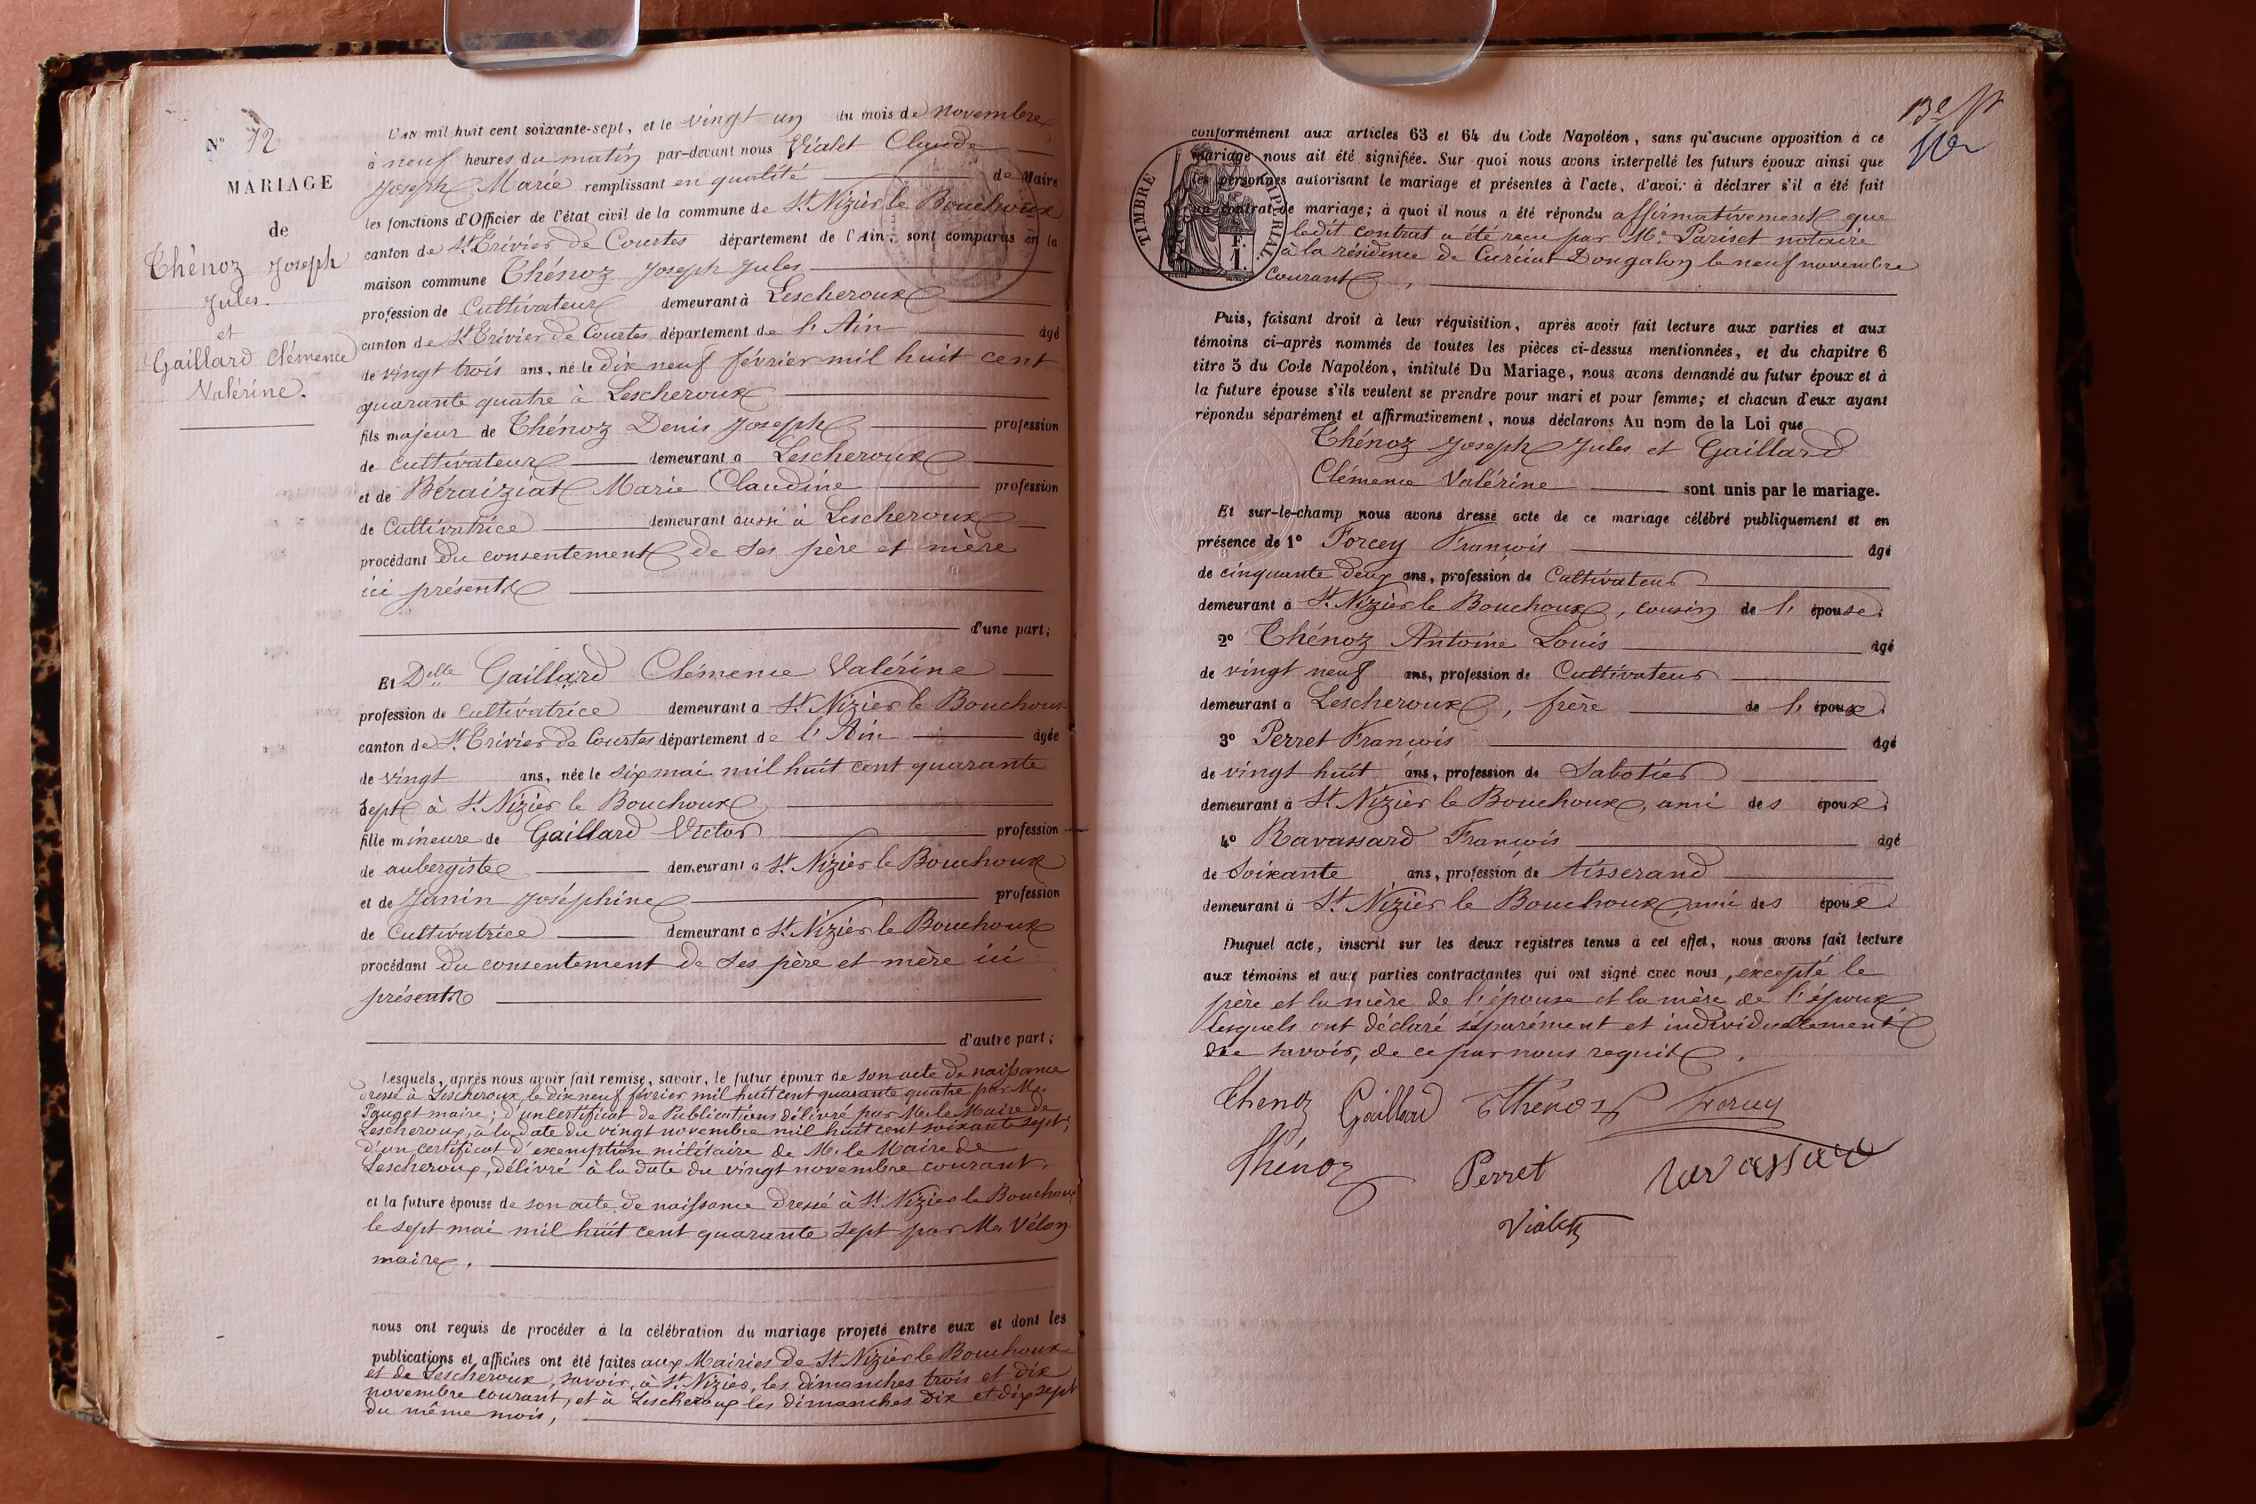 N° 12
MARIAGE
de
Thénoz Joseph
Jules.
et
Gaillard Clémence
Valérine.
L'an mil huit cent soixante-sept, et le vingt un du mois de novembre
à neuf heures du matin par-devant nous Vialet Claude
Joseph Marie remplissant en qualité de Maire
les fonctions d'Officier de l'état civil de la commune de St Nizier le Bouchoux
canton de St Trivier de Courtes département de l'Ain, sont comparus en la
maison commune Thénoz Joseph Jules
profession de Cultivateur demeurant à Lescheroux
canton de St Trivier de Courtes département de l'Ain âgé
de vingt trois ans, né le dix neuf février mil huit cent
quarante quatre à Lescheroux
fils majeur de Thénoz Denis Joseph profession
de cultivateur demeurant à Lescheroux
et de Béraiziat Marie Claudine profession
de Cultivatrice demeurant aussi à Lescheroux
procédant du consentement de ses père et mère
ici présents
d'une part;
Et Delle Gaillard Clémence Valérine
profession de cultivatrice demeurant à St Nizier le Bouchoux
canton de St Trivier de Courtes département de l'Ain âgée
de vingt ans, née le six mai mil huit cent quarante
sept à St Nizier le Bouchoux
fille mineure de Gaillard Victor profession
de aubergiste demeurant à St Nizier le Bouchoux
et de Janin Joséphine profession
de Cultivatrice demeurant à St Nizier le Bouchoux
procédant du consentement de ses père et mère ici
présents
d'autre part;
Lesquels, après nous avoir fait remise, savoir, le futur époux de son acte de naissance
dressé à Lescheroux le dix neuf février mil huit cent quarante quatre par Mr
Pauget maire; d'un certificat de Publications délivré par Mr le Maire de
Lescheroux, à la date du vingt novembre mil huit cent soixante sept;
d'un certificat d'exemption militaire de Mr le Maire de
Lescheroux, délivré à la date du vingt novembre courant.
et la future épouse de son acte de naissance dressé à St Nizier le Bouchoux
le sept mai mil huit cent quarante sept par Mr Vélon
maire.
nous ont requis de procéder à la célébration du mariage projeté entre eux et dont les
publications et affiches ont été faites aux Mairies de St Nizier le Bouchoux
et de Lescheroux, savoir, à St Nizier, les dimanches trois et dix
novembre courant, et à Lescheroux les dimanches dix et dix sept
du même mois,
TIMBRE IMPÉRIAL
1 F.
conformément aux articles 63 et 64 du Code Napoléon, sans qu'aucune opposition à ce
mariage nous ait été signifiée. Sur quoi nous avons interpellé les futurs époux ainsi que
les personnes autorisant le mariage et présentes à l'acte, d'avoir à déclarer s'il a été fait
un contrat de mariage; à quoi il nous a été répondu affirmativement que
ledit contrat a été reçu par Me Pariset notaire
à la résidence de Curciat Dongalon le neuf novembre
courant,
Puis, faisant droit à leur réquisition, après avoir fait lecture aux parties et aux
témoins ci-après nommés de toutes les pièces ci-dessus mentionnées, et du chapitre 6
titre 5 du Code Napoléon, intitulé Du Mariage, nous avons demandé au futur époux et à
la future épouse s'ils veulent se prendre pour mari et pour femme; et chacun d'eux ayant
répondu séparément et affirmativement, nous déclarons Au nom de la Loi que
Thénoz Joseph Jules et Gaillard
Clémence Valérine sont unis par le mariage.
Et sur-le-champ nous avons dressé acte de ce mariage célébré publiquement et en
présence de 1° Forcey François âgé
de cinquante deux ans, profession de Cultivateur
demeurant à St Nizier le Bouchoux, cousin de l'épouse.
2° Thénoz Antoine Louis âgé
de vingt neuf ans, profession de Cultivateur
demeurant à Lescheroux, frère de l'époux.
3° Perret François âgé
de vingt huit ans, profession de Sabotier
demeurant à St Nizier le Bouchoux, ami des époux.
4° Ravassard François âgé
de Soixante ans, profession de tisserand
demeurant à St Nizier le Bouchoux, ami des époux.
Duquel acte, inscrit sur les deux registres tenus à cet effet, nous avons fait lecture
aux témoins et aux parties contractantes qui ont signé avec nous, excepté le
père et la mère de l'épouse et la mère de l'époux
lesquels ont déclaré séparément et individuellement
ne savoir, de ce par nous requis.
Thenoz Gaillard Thénoz Forcey
Thénoz Perret Ravassard
Vialet